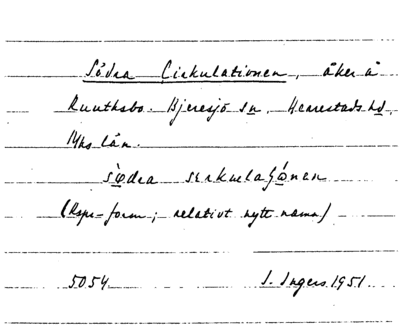 Södra Cirkulationen, åker å
Ruuthsbo. Bjeresjö sn, Herrestads hd,
Mhs län.
södra serkuelaʃónen
(Rspr=form; relativt nytt namn)
5054 I. Ingers 1951